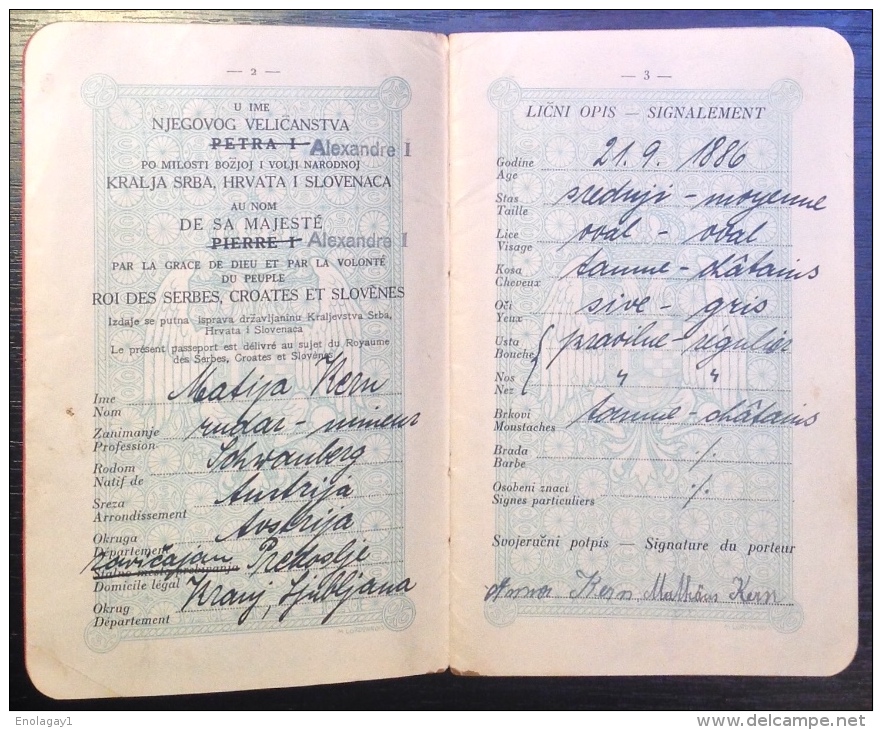 — 2 —
U IME
NJEGOVOG VELIČANSTVA
PETRA I Alexandre I
PO MILOSTI BOŽJOJ I VOLJI NARODNOJ
KRALJA SRBA, HRVATA I SLOVENACA
AU NOM
DE SA MAJESTÉ
PIERRE I Alexandre I
PAR LA GRACE DE DIEU ET PAR LA VOLONTÉ
DU PEUPLE
ROI DES SERBES, CROATES ET SLOVÈNES
Izdaje se putna isprava državljaninu Kraljevstva Srba,
Hrvata i Slovenaca
Le présent passeport est délivré au sujet du Royaume
des Serbes, Croates et Slovènes
Ime Matija Kern
Nom
Zanimanje rudar - mineur
Profession
Rodom Schwanberg
Natif de
Sreza Austrija
Arrondissement
Okruga Avstrija
Département
Zavičajan Predoslje
Stalno mesto prebivanja
Domicile légal
Okrug Kranj, Ljubljana
Département
— 3 —
LIČNI OPIS — SIGNALEMENT
Godine 21. 9. 1886
Age
Stas srednji - moyenne
Taille
Lice oval - oval
Visage
Kosa tamne - châtains
Cheveux
Oži sive - gris
Yeux
Usta pravilne - régulier
Bouche
Nos " "
Nez
Brkovi tamne - châtains
Moustaches
Brada ./.
Barbe
Osobeni znaci ./.
Signes particuliers
Svojeručni potpis — Signature du porteur
Anna Kern Mathäus Kern
Enolagay1
delcampe.net